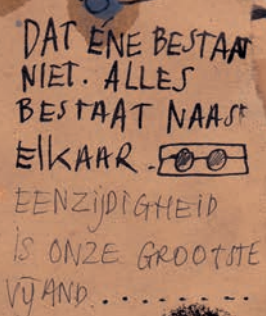 DAT ÉNE BESTAAT
NIET. ALLES
BESTAAT NAAST
ElKAAR.
EENZIJDIGHEID
IS ONZE GROOTSTE
VIJAND........